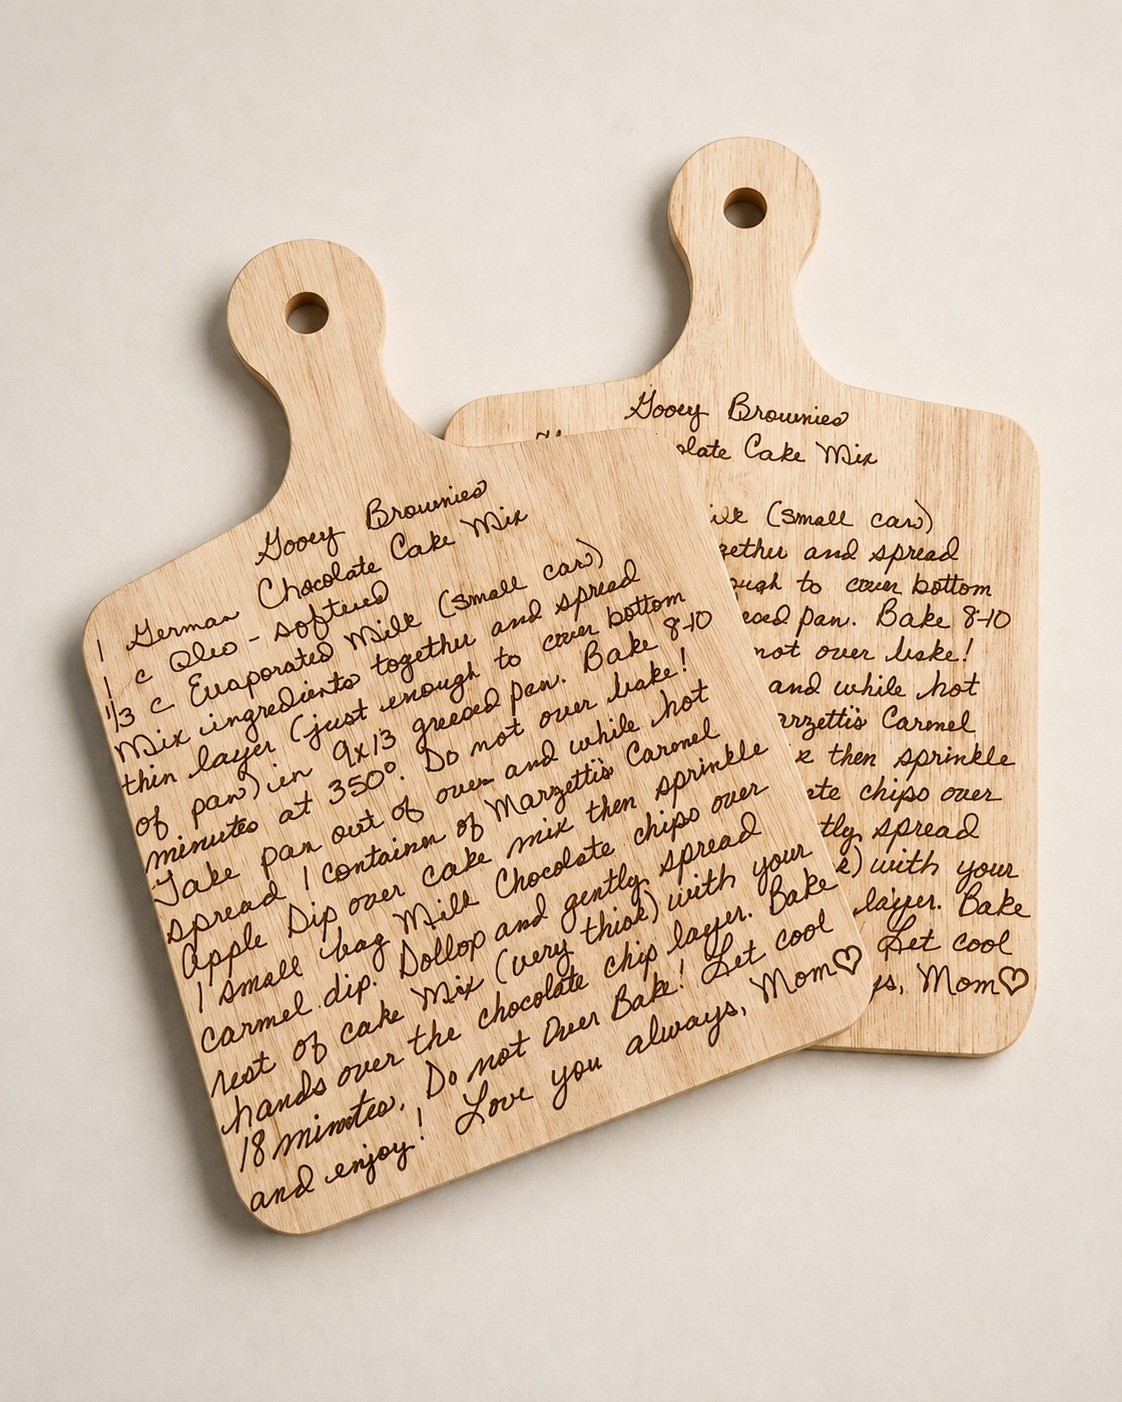 Gooey Brownies
1 German Chocolate Cake Mix
1 c Oleo - softened
1/3 c Evaporated Milk (small can)
Mix ingredients together and spread
thin layer (just enough to cover bottom
of pan) in 9x13 greeced pan. Bake 8-10
minutes at 350°. Do not over bake!
Take pan out of oven and while hot
spread 1 container of Marzetti's Carmel
Apple Dip over cake mix then sprinkle
1 small bag Milk Chocolate chips over
carmel dip. Dollop and gently spread
rest of cake Mix (very thick) with your
hands over the chocolate chip layer. Bake
18 minutes. Do not Over Bake! Let cool
and enjoy! Love you always, Mom♡
Gooey Brownies
olate Cake Mix
ilk (small can)
gether and spread
ough to cover bottom
eced pan. Bake 8-10
not over bake!
and while hot
arzetti's Carmel
x then sprinkle
ate chips over
tly spread
k) with your
layer. Bake
Let cool
ys, Mom♡